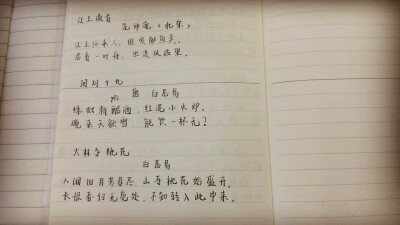 江上渔者
范仲淹(北宋)
江上往来人,但爱鲈鱼美。
君看一叶舟,出没风波里。
问刘十九
唐 白居易
绿蚁新醅酒,红泥小火炉。
晚来天欲雪,能饮一杯无?
大林寺桃花
白居易
人间四月芳菲尽,山寺桃花始盛开。
长恨春归无觅处,不知转入此中来。